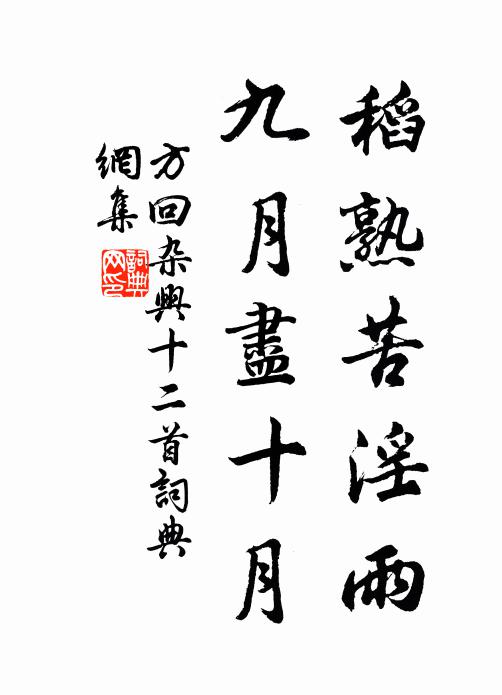 稻熟苦淫雨
九月盡十月
方回杂興十二首詞典
網集
詞典
网印